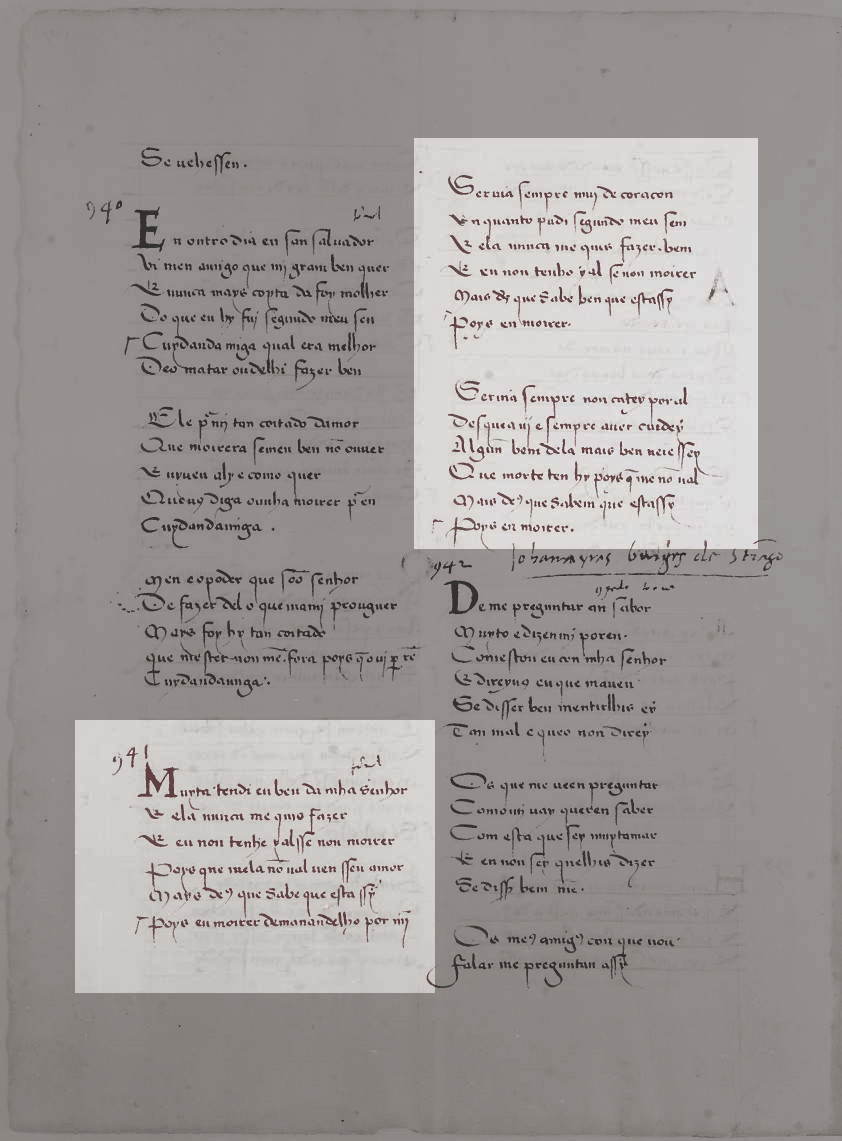 Se vehessen.
940
En outro dia en san salvador
Vi meu amigo que mj gram ben quer
E nunca mays coyta da foy molher
Do que eu hy fuj segundo meu sen
Cuydanda miga qual era melhor
De o matar ou delhi fazer ben
El e pᵉ mj tan coitado damor
Que moirera se meu ben nō ouver
E vyveu aly e como quer
Que vꝰ diga ou nha moirer pᵉ en
Cuydandamiga.
Meu e o poder que sōo senhor
De fazer del o que mami prouguer
Mays foy hy tan coitado
que mester non mē. fora poys q̄ o vi per rē
Cuydandamiga.
941
Muyta tendi eu ben da mha senhor
E ela nunca me quis fazer
E eu non tenhe yalsse non moirer
Poys que mela nō val nen sseu amor
Mays deꝰ que sabe que esta ssy
Poys eu moirer demanandelho por mī
Servia sempre muy de coraçon
En quanto pudi segundo meu sem
E ela nunca me quis fazer. bem
E eu non tenho yal se non moirer
Mais dꝰ que sabe ben que estassy
Poys eu moirer.
A
Servia sempre non catey por al
Des que a uj e sempre aver cuidey
Algun̄ bem dela mais ben veie ssey
Que morte ten hy poys q̄ me nō val
Mais deꝰ que sabem que estassy
Poys eu moirer.
942
Johan ayras burgᵉs de Stiago
De me preguntar an sabor
Muyto e dizen mj poren.
Com estou eu con mha senhor
E direyvꝰ eu que mauen
Se disser ben mentirlhis ey
Tan mal e que o non direy
Os que me veen preguntar
Como mi vay queren saber
Com esta que sey muytamar
E eu non sey quelhis dizer
Se dissᵉ bem me.
Os meꝰ amigꝰ con que vou
falar me preguntan assy